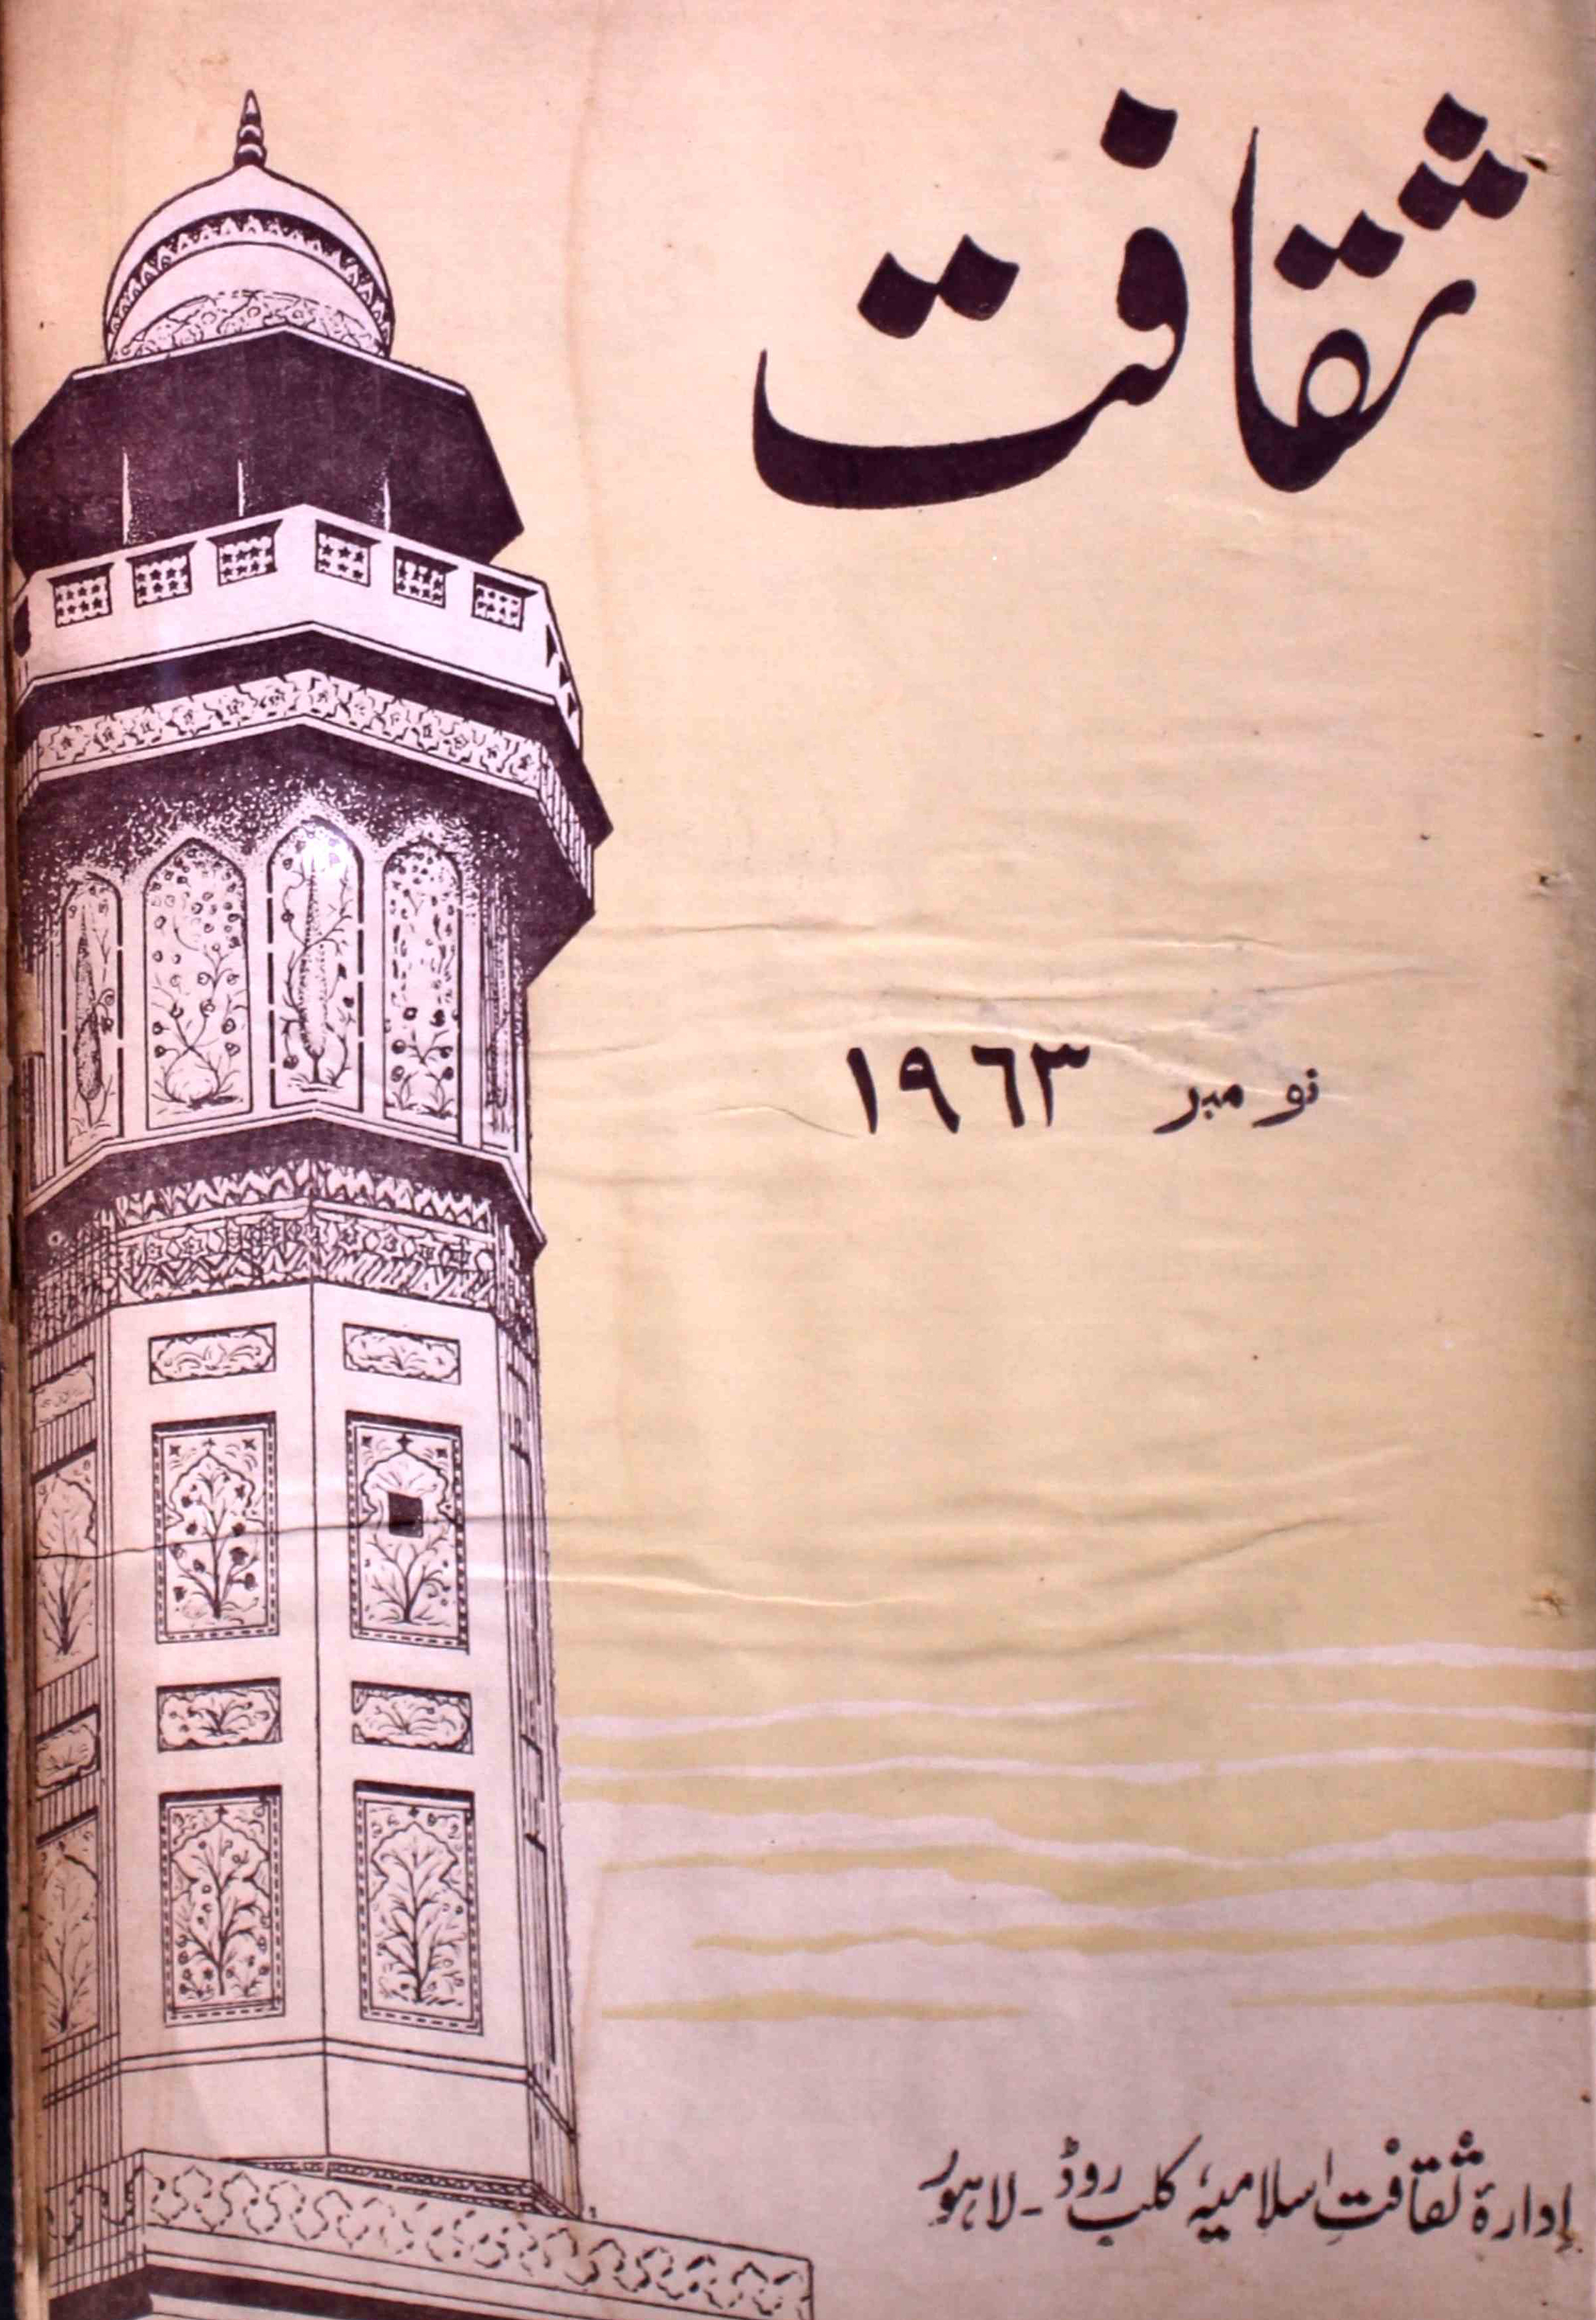 ثقافت
نومبر ۱۹۶۳
ادارۂ ثقافتِ اسلامیہ، کلب روڈ - لاہور